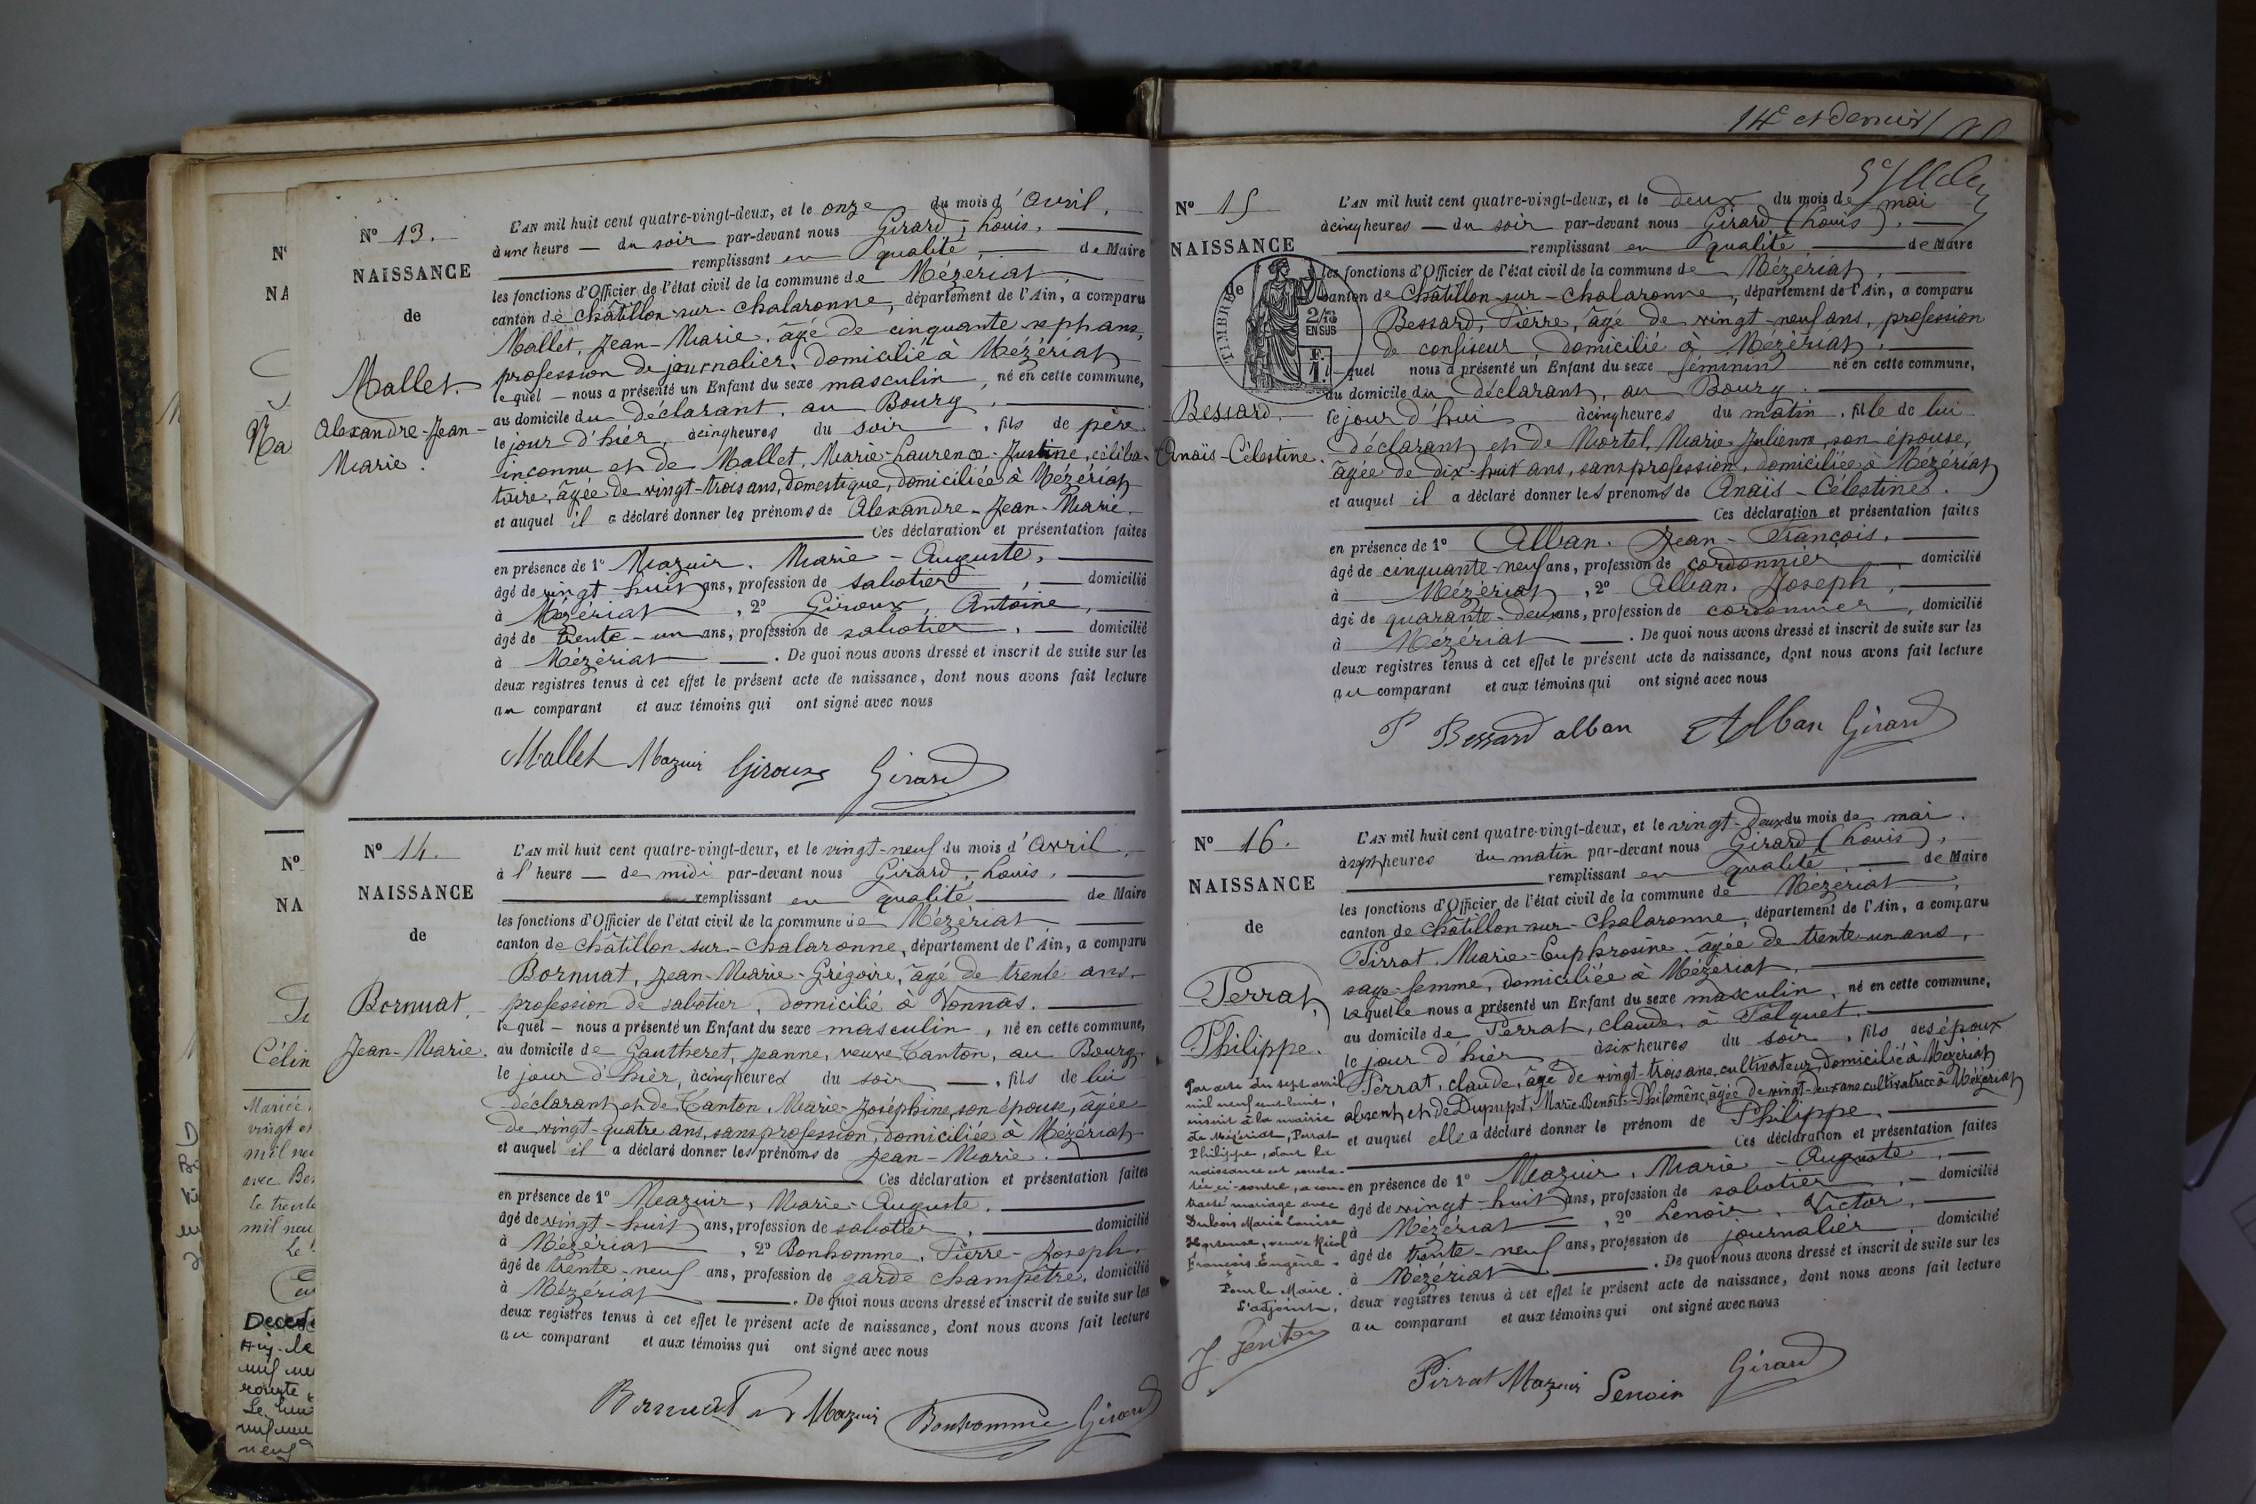 14e et dernier
N° 13.
NAISSANCE
de
Mallet
Alexandre-Jean-
Marie.
L'AN mil huit cent quatre-vingt-deux, et le onze du mois d'avril,
à une heure — du soir par-devant nous Girard, Louis,
remplissant en qualité de Maire
les fonctions d'Officier de l'état civil de la commune de Mézériat,
canton de Châtillon-sur-Chalaronne, département de l'Ain, a comparu
Mallet, Jean-Marie, âgé de cinquante-sept ans,
profession de journalier, domicilié à Mézériat
lequel — nous a présenté un Enfant du sexe masculin, né en cette commune,
au domicile du déclarant, au Bourg,
le jour d'hier, à cinq heures du soir, fils de père
inconnu et de Mallet, Marie-Laurence-Justine, céliba-
taire, âgée de vingt-trois ans, domestique, domiciliée à Mézériat
et auquel il a déclaré donner les prénoms de Alexandre-Jean-Marie.
Ces déclaration et présentation faites
en présence de 1° Mazuir, Marie-Auguste,
âgé de vingt-huit ans, profession de sabotier, domicilié
à Mézériat, 2° Giroux, Antoine,
âgé de trente-un ans, profession de sabotier, domicilié
à Mézériat. De quoi nous avons dressé et inscrit de suite sur les
deux registres tenus à cet effet le présent acte de naissance, dont nous avons fait lecture
au comparant et aux témoins qui ont signé avec nous
Mallet Mazuir Giroux Girard
N° 14.
NAISSANCE
de
Bornuat,
Jean-Marie.
L'AN mil huit cent quatre-vingt-deux, et le vingt-neuf du mois d'avril,
à l'heure — de midi par-devant nous Girard, Louis,
remplissant en qualité de Maire
les fonctions d'Officier de l'état civil de la commune de Mézériat,
canton de Châtillon-sur-Chalaronne, département de l'Ain, a comparu
Bornuat, Jean-Marie-Grégoire, âgé de trente ans,
profession de sabotier, domicilié à Vonnas,
lequel — nous a présenté un Enfant du sexe masculin, né en cette commune,
au domicile de Gautheret, Jeanne, veuve Canton, au Bourg,
le jour d'hier, à cinq heures du soir —, fils de lui
déclarant et de Canton, Marie-Joséphine, son épouse, âgée
de vingt-quatre ans, sans profession, domiciliée à Mézériat
et auquel il a déclaré donner les prénoms de Jean-Marie.
Ces déclaration et présentation faites
en présence de 1° Mazuir, Marie-Auguste,
âgé de vingt-huit ans, profession de sabotier, domicilié
à Mézériat, 2° Bonhomme, Pierre-Joseph,
âgé de trente-neuf ans, profession de garde champêtre, domicilié
à Mézériat. De quoi nous avons dressé et inscrit de suite sur les
deux registres tenus à cet effet le présent acte de naissance, dont nous avons fait lecture
au comparant et aux témoins qui ont signé avec nous
Bornuat Mazuir Bonhomme Girard
N° 15
NAISSANCE
de
TIMBRE
2/10
EN SUS
F.
1.
Bessard.
Anaïs-Célestine.
L'AN mil huit cent quatre-vingt-deux, et le deux du mois de mai
à cinq heures — du soir par-devant nous Girard (Louis),
remplissant en qualité de Maire
les fonctions d'Officier de l'état civil de la commune de Mézériat,
canton de Châtillon-sur-Chalaronne, département de l'Ain, a comparu
Bessard, Pierre, âgé de vingt-neuf ans, profession
de confiseur domicilié à Mézériat,
lequel nous a présenté un Enfant du sexe féminin né en cette commune,
au domicile du déclarant, au Bourg.
le jour d'hui à cinq heures du matin, fille de lui
déclarant et de Mortel, Marie-Julienne, son épouse,
âgée de dix-huit ans, sans profession, domiciliée à Mézériat
et auquel il a déclaré donner les prénoms de Anaïs-Célestine.
Ces déclaration et présentation faites
en présence de 1° Alban, Jean-François,
âgé de cinquante-neuf ans, profession de cordonnier, domicilié
à Mézériat, 2° Alban, Joseph,
âgé de quarante-deux ans, profession de cordonnier, domicilié
à Mézériat. De quoi nous avons dressé et inscrit de suite sur les
deux registres tenus à cet effet le présent acte de naissance, dont nous avons fait lecture
au comparant et aux témoins qui ont signé avec nous
P Bessard alban Alban Girard
N° 16.
NAISSANCE
de
Perrat,
Philippe.
Par acte du sept avril
mil neuf cent huit,
inscrit à la mairie
de Mézériat, Perrat
Philippe, dont la
naissance est consta-
tée ci-contre, a con-
tracté mariage avec
Dubois Marie Louise
Hortense, veuve Réol
François Eugène.
Pour le Maire.
L'adjoint,
L'AN mil huit cent quatre-vingt-deux, et le vingt-deux du mois de mai,
à sept heures du matin par-devant nous Girard (Louis),
remplissant en qualité de Maire
les fonctions d'Officier de l'état civil de la commune de Mézériat,
canton de Châtillon-sur-Chalaronne, département de l'Ain, a comparu
Pirrat, Marie-Euphrosine, âgée de trente-un ans,
sage-femme, domiciliée à Mézériat,
laquelle nous a présenté un Enfant du sexe masculin, né en cette commune,
au domicile de Perrat, Claude, à Polquet,
le jour d'hier à six heures du soir, fils des époux
Perrat, Claude, âgé de vingt-trois ans, cultivateur, domicilié à Mézériat
absent, et de Dupupet, Marie-Benoît-Philomène, âgée de vingt-deux ans cultivatrice à Mézériat
et auquel elle a déclaré donner le prénom de Philippe.
Ces déclaration et présentation faites
en présence de 1° Mazuir, Marie-Auguste,
âgé de vingt-huit ans, profession de sabotier, domicilié
à Mézériat, 2° Lenoir, Victor,
âgé de trente-neuf ans, profession de journalier, domicilié
à Mézériat. De quoi nous avons dressé et inscrit de suite sur les
deux registres tenus à cet effet le présent acte de naissance, dont nous avons fait lecture
au comparant et aux témoins qui ont signé avec nous
Pirrat Mazuir Lenoir Girard